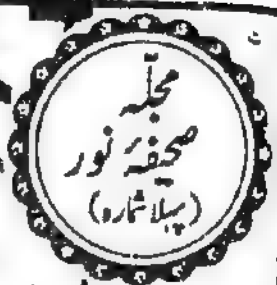 مجلّہ
صحیفۂ نور
(پہلا شمارہ)